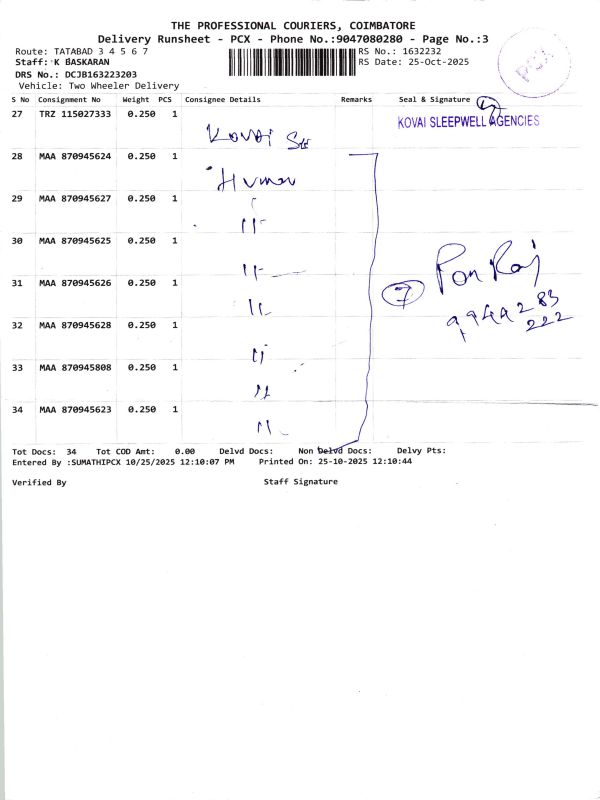 THE PROFESSIONAL COURIERS, COIMBATORE
Delivery Runsheet - PCX - Phone No.:9047080280 - Page No.:3
Route: TATABAD 3 4 5 6 7
RS No.: 1632232
Staff: K BASKARAN
RS Date: 25-Oct-2025
DRS No.: DCJB163223203
Vehicle: Two Wheeler Delivery
PCX
S No Consignment No Weight PCS Consignee Details Remarks Seal & Signature
27 TRZ 115027333 0.250 1
KOVAI
KOVAI SLEEPWELL AGENCIES
28 MAA 870945624 0.250 1
Human
29 MAA 870945627 0.250 1
11
30 MAA 870945625 0.250 1
11
31 MAA 870945626 0.250 1
11
32 MAA 870945628 0.250 1
11
33 MAA 870945808 0.250 1
11
34 MAA 870945623 0.250 1
11
7
Pon Raj
9944283
222
Tot Docs: 34 Tot COD Amt: 0.00 Delvd Docs: Non Delvd Docs: Delvy Pts:
Entered By :SUMATHIPCX 10/25/2025 12:10:07 PM Printed On: 25-10-2025 12:10:44
Verified By Staff Signature